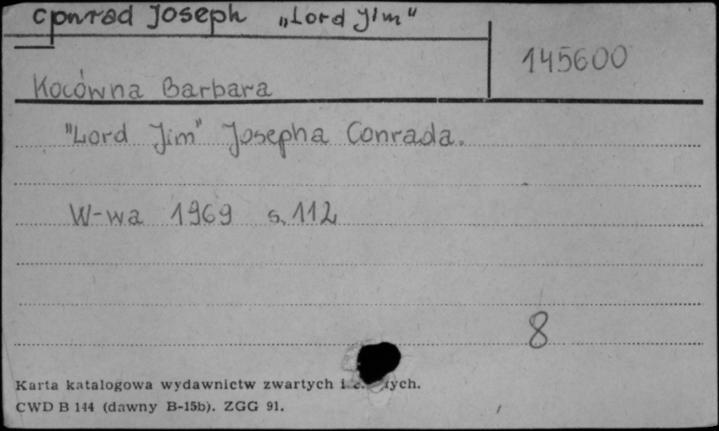 Conrad Joseph „Lord Jim"
145600
Kocówna Barbara
"Lord Jim" Josepha Conrada.
W-wa 1969 s. 112
8
Karta katalogowa wydawnictw zwartych i
CWD B 144 (dawny B-15b). ZGG 91.